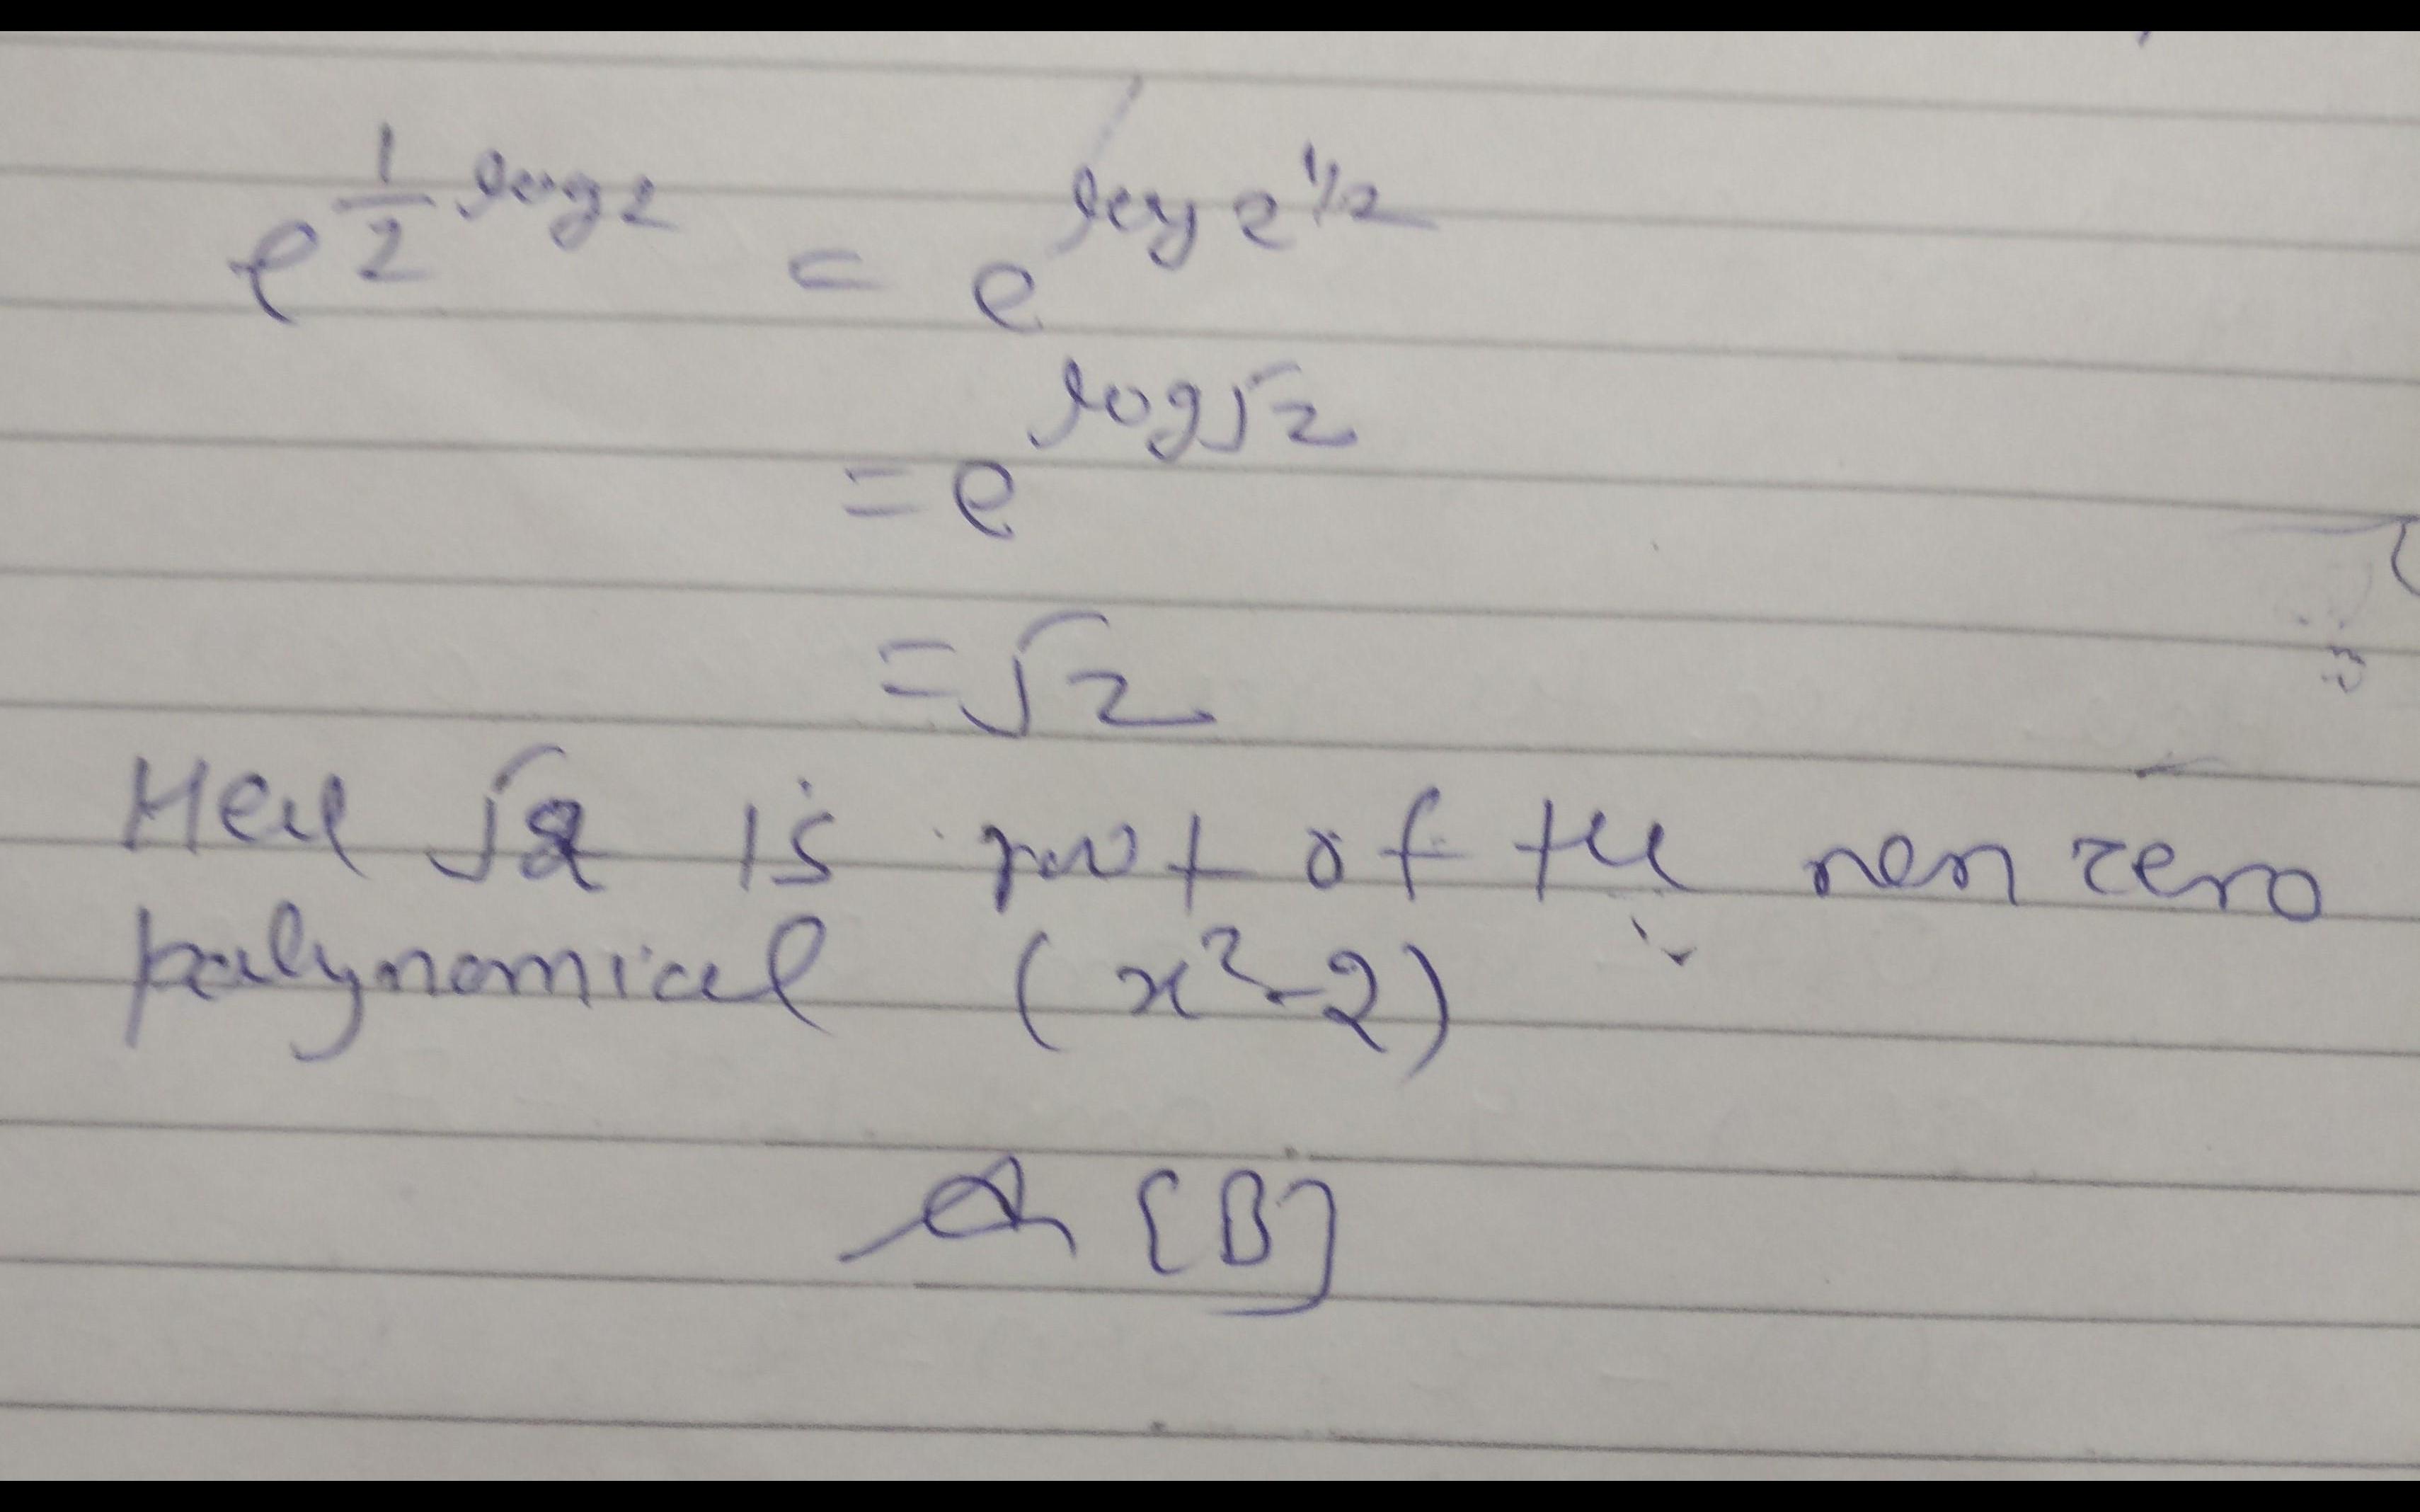 e^{\frac{1}{2} log 2} = e^{log 2^{1/2}}
= e^{log √2}
= √2
Here √2 is root of the non zero
polynomical (x²-2)
[B]